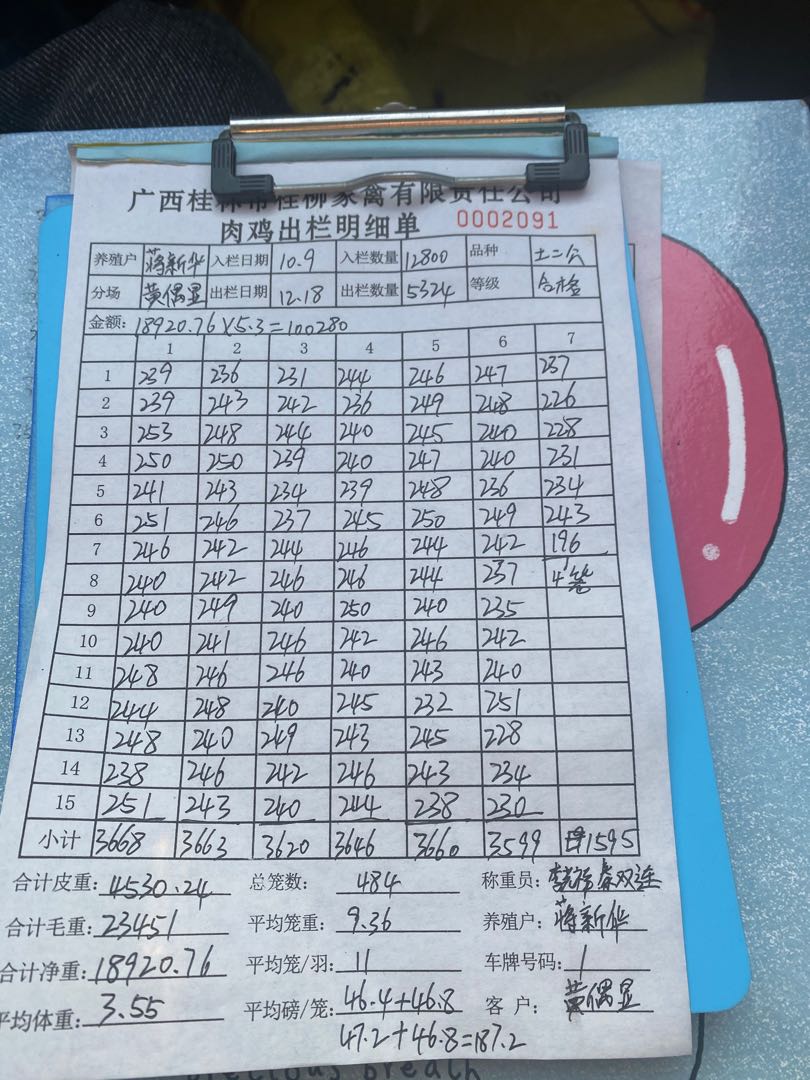 广西桂林市桂柳家禽有限责任公司
肉鸡出栏明细单 0002091
养殖户 蒋新华 入栏日期 10.9 入栏数量 12800 品种 土二公
分场 黄偶显 出栏日期 12.18 出栏数量 5324 等级 合格
金额: 18920.76×5.3=100280
1 2 3 4 5 6 7
1 239 236 231 244 246 247 237
2 239 243 242 236 249 248 226
3 253 248 244 240 245 240 228
4 250 250 239 240 247 240 231
5 241 243 234 239 248 236 234
6 251 246 237 245 250 249 243
7 246 242 244 246 244 242 196
8 240 242 246 246 244 237 4笼
9 240 249 240 250 240 235
10 240 241 246 242 246 242
11 248 246 246 240 243 240
12 244 248 240 245 232 251
13 248 240 249 243 245 228
14 238 246 242 246 243 234
15 251 243 240 244 238 230
小计 3668 3663 3620 3646 3660 3599 1595
合计皮重: 4530.24 总笼数: 484 称重员: 秦双连
合计毛重: 23451 平均笼重: 9.36 养殖户: 蒋新华
合计净重: 18920.76 平均笼/羽: 11 车牌号码: 1
平均体重: 3.55 平均磅/笼: 46.4+46.8 客 户: 黄偶显
47.2+46.8=187.2
precious breath